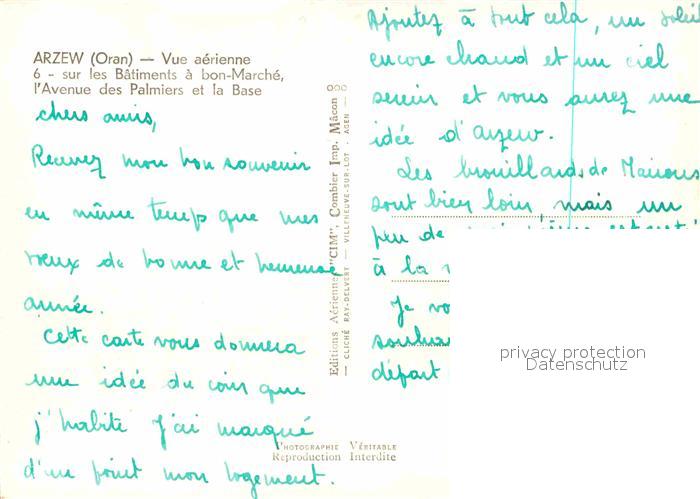 ARZEW (Oran) — Vue aérienne
6 - sur les Bâtiments à bon-Marché,
l'Avenue des Palmiers et la Base
chers amis,
Recevez mon bon souvenir
en même temps que mes
voeux de bonne et heureuse
année.
Cette carte vous donnera
une idée du coin que
j'habite J'ai marqué
d'un point mon logement.
Editions Aériennes "CIM", Combier Imp. Mâcon
— CLICHÉ RAY-DELVERT — VILLENEUVE-SUR-LOT - AGEN —
PHOTOGRAPHIE VÉRITABLE
Reproduction Interdite
Ajoutez à tout cela, un soleil
encore chaud et un ciel
serein et vous aurez une
idée d'arzew.
Les brouillards de
sont bien loin, mais un
peu de
à la
Je vo
départ
privacy protection
Datenschutz